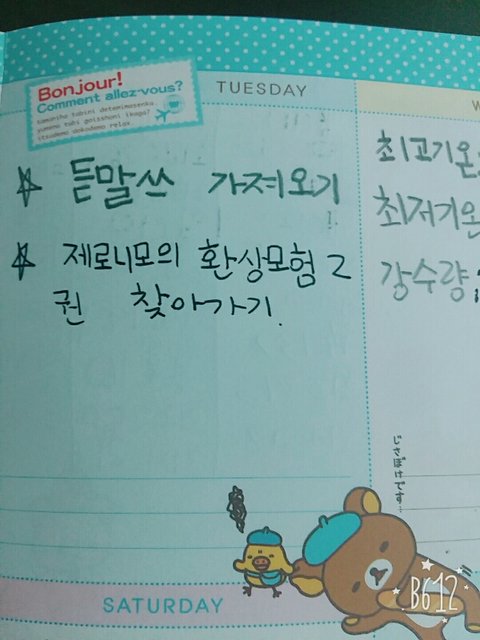 Bonjour!
Comment allez-vous?
TUESDAY
☆ 듣말쓰 가져오기
☆ 제로니모의 환상모험 2
권 찾아가기.
최고기온
최저기온
강수량
じさぼけです…
SATURDAY
B612